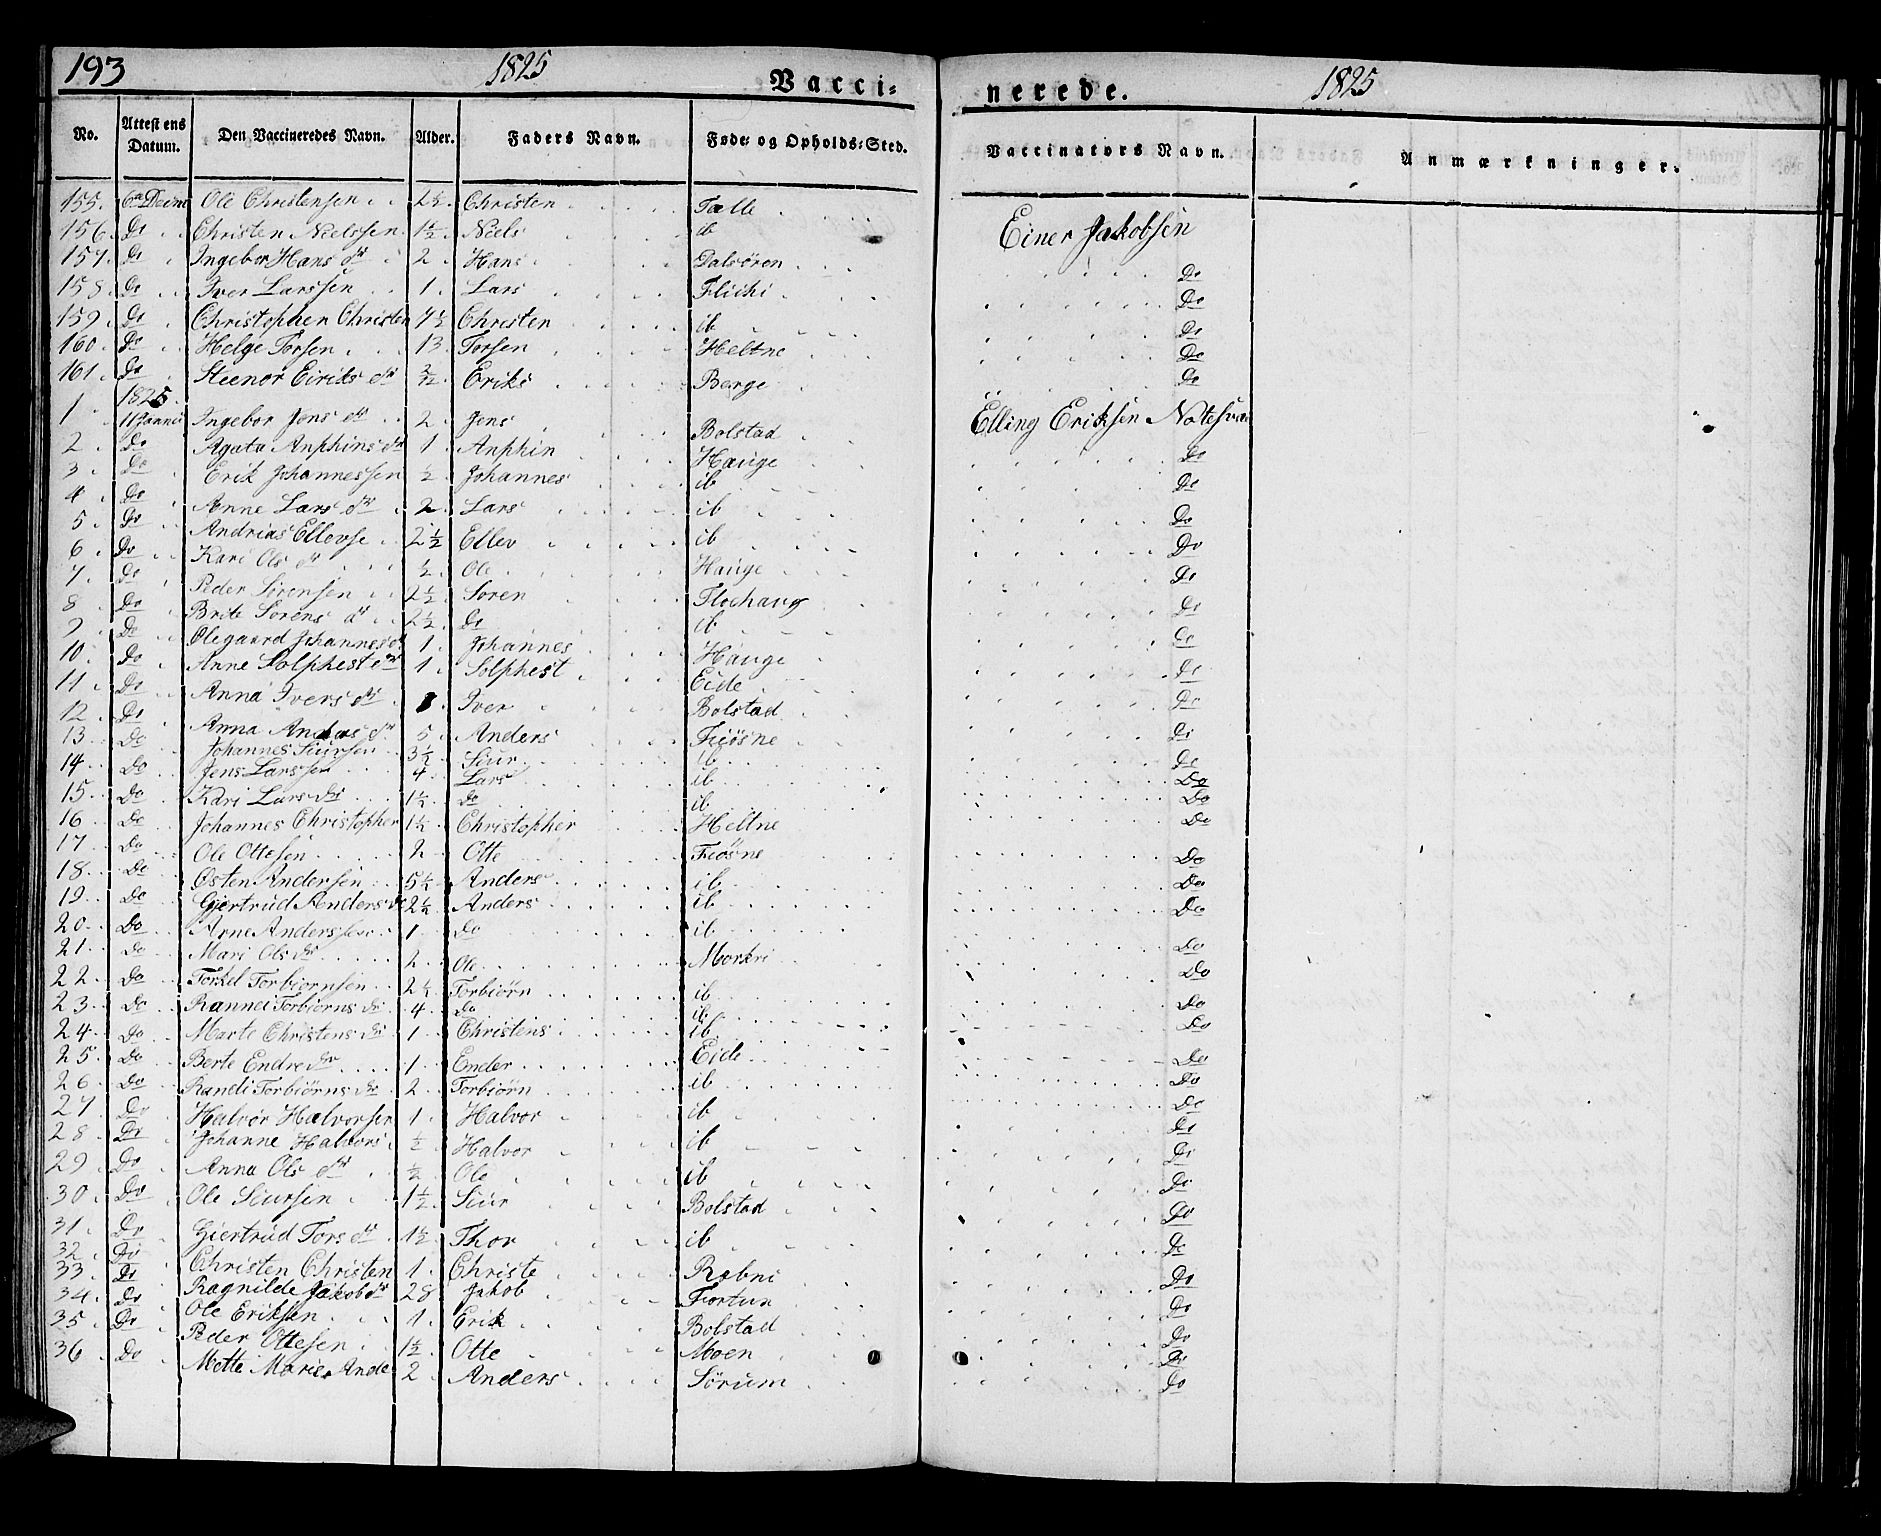 193 1825 Vacci- nerede. 1825
No. Attestens Datum. Den Vaccineredes Navn. Alder. Faders Navn. Føde- og Opholds-Sted. Vaccinators Navn. Anmærkninger.
155. Ole Christensen 2½. Christen Talle Einer Jakobsen
156. Do Christen Nielssen 1½ Niels ib
157. Do Ingebor Hans dtr 2 Hans Dalsøren Do
158. Do Iver Larssen 1. Lars Flicki Do
159. Do Christopher Christen 7½ Christen ib Do
160. Do Helge Torsen 13 Torsen Heltne Do
161. Do Steenor Eiriks dtr Eriks Berge Do
1825
1 11 Ingebor Jens dtr 2 Jens Bolstad Elling Eriksen
2. Do Agata Anphins dtr 1 Anphin Hauge Do
3. Do Erik Johannessen ½ Johannes ib Do
4. Do Anne Lars dtr 2 Lars ib Do
5. Do Andrias Ellevse 2½ Ellev ib Do
6. Do Kari Ols dtr ½ Ole Hauge Do
7. Do Peder Sørensen 2½ Soren Flochaug Do
8. Do Brite Sorens dr 2½ Do ib Do
9. Do Olegaard Johannes dr 1. Johannes Hauge Do
10. Do Anne Solphest dtr 1 Solphest Eide Do
11. Do Anna Ivers dtr Iver Bolstad Do
12. Do Anna Anders dtr 5 Anders Fiøsne Do
13. Do Johannes Siursen 3½ Siur ib Do
14. Do Jens Larssen 4 Lars ib Do
15. Do Kari Lars dtr 1½ Do ib Do
16. Do Johannes Christopher Christopher Heltne Do
17. Do Ole Ottesen 2 Otte Fiøsne Do
18. Do Østen Andersen Anders ib Do
19. Do Gjertrud Anders dr Anders ib Do
20. Do Arne Anderssen 1 Do ib
21. Do Mari Ols dr 2 Ole Morkri Do
22. Do Torkel Torbiørnsen Torbiørn ib Do
23. Do Rannei Torbiørns dr 4 Do ib Do
24. Do Marte Christens dr 1 Christens ib Do
25. Do Berte Endre dr 1 Ender Eide Do
26. Do Randi Torbiørns dr 2 Torbiørn ib Do
27 Do Halvor Halvorsen 1 Halvor ib Do
28. Do Johanne Halvors ½ Halvor ib Do
29. Do Anna Ols dtr ½ Ole ib Do
30. Do Ole Siursen 1½ Siur Bolstad Do
31. Do Giertrud Tors dtr 1½ Thor ib Do
32. Do Christen Christen 1. Christe Do
33. Do Ragnilde Jakob dtr 28 Jakob Fortun Do
34. Do Ole Eriksen 1. Erik Bolstad Do
35. Do Peder Ottesen 1½ Otte Moen Do
36. Do Mette Marie Ande 2 Anders Sørum Do